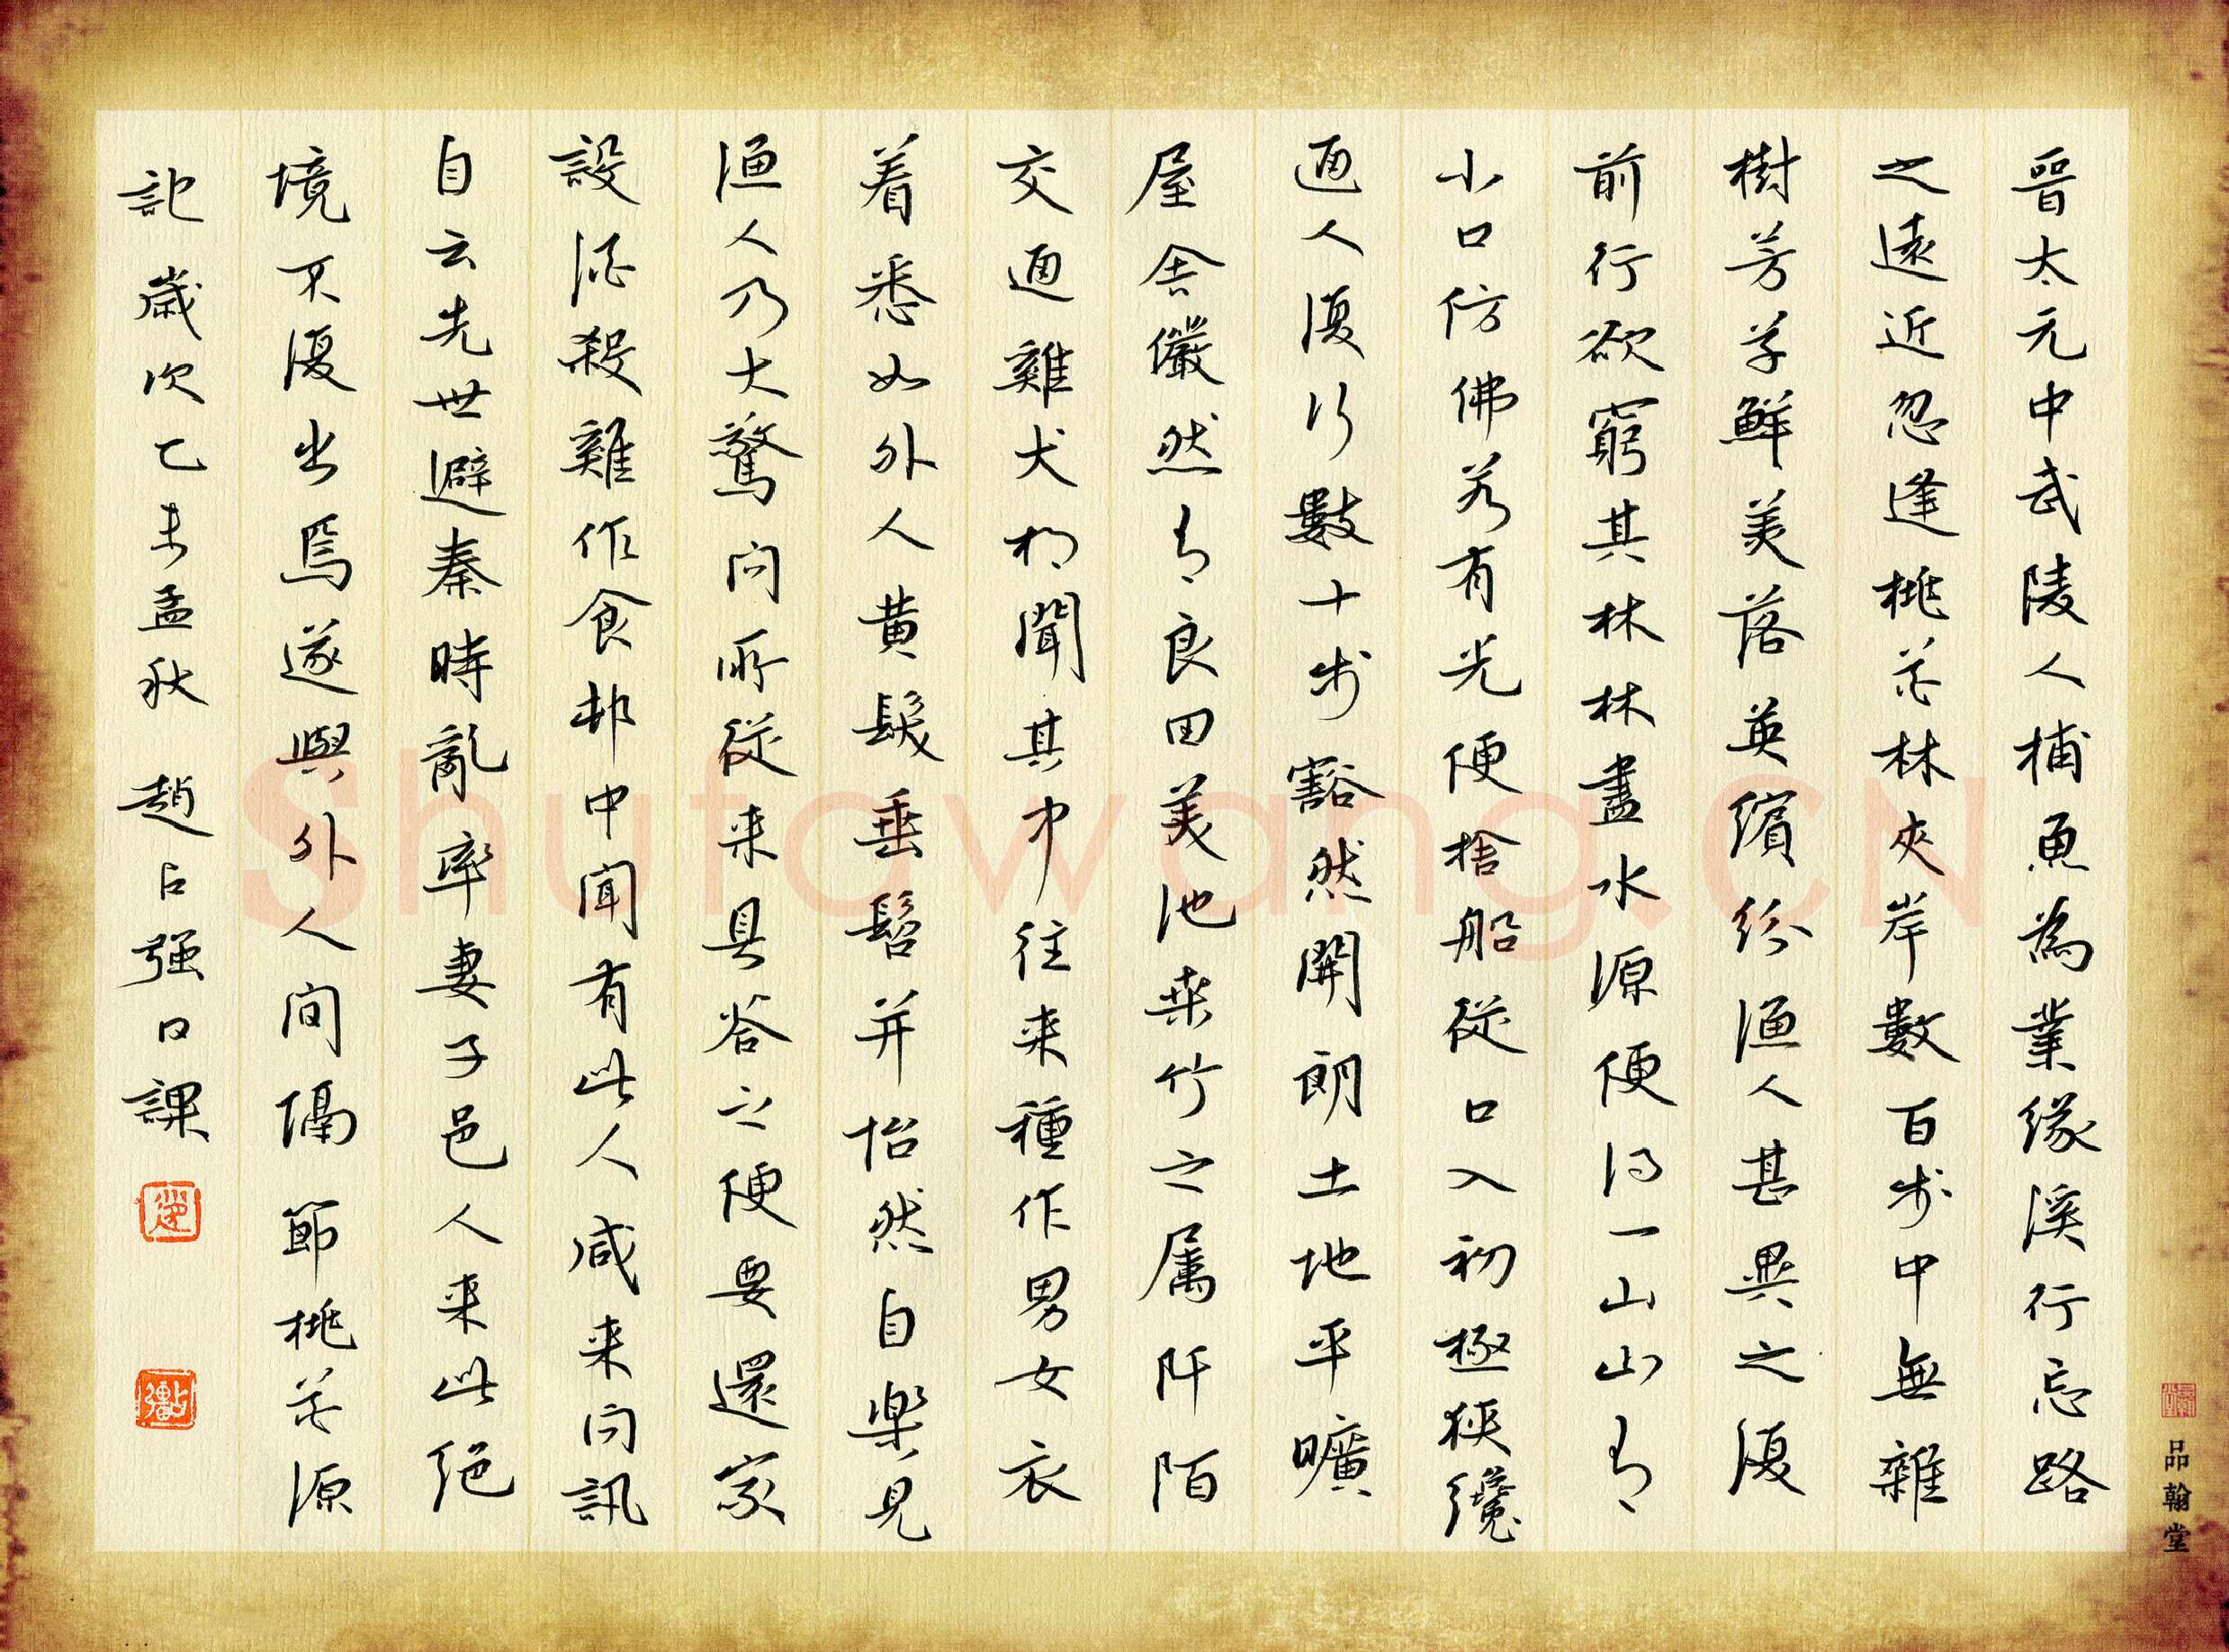 晉太元中武陵人捕魚為業緣溪行忘路
之遠近忽逢桃花林夾岸數百步中無雜
樹芳草鮮美落英繽紛漁人甚異之復
前行欲窮其林林盡水源便得一山山有
小口仿佛若有光便捨船從口入初極狹纔
通人復行數十步豁然開朗土地平曠
屋舍儼然有良田美池桑竹之屬阡陌
交通雞犬相聞其中往來種作男女衣
着悉如外人黄髮垂髫并怡然自樂見
漁人乃大驚問所從来具答之便要還家
設酒殺雞作食邨中聞有此人咸来问訊
自云先世避秦時亂率妻子邑人来此絕
境不復出焉遂與外人間隔節桃花源
記歲次乙未孟秋 趙占強日課
品翰堂
Shufawang.CN